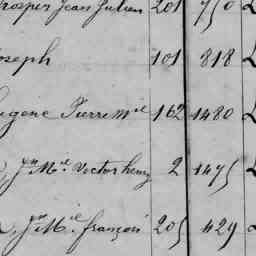 Prosper Jean Julien 201 750 L
Joseph 101 818 L
Eugène Pierre Mie 162 1480 L
Jn Mie Victor henry 2 1475 L
Jn Mie françois 205 429 L